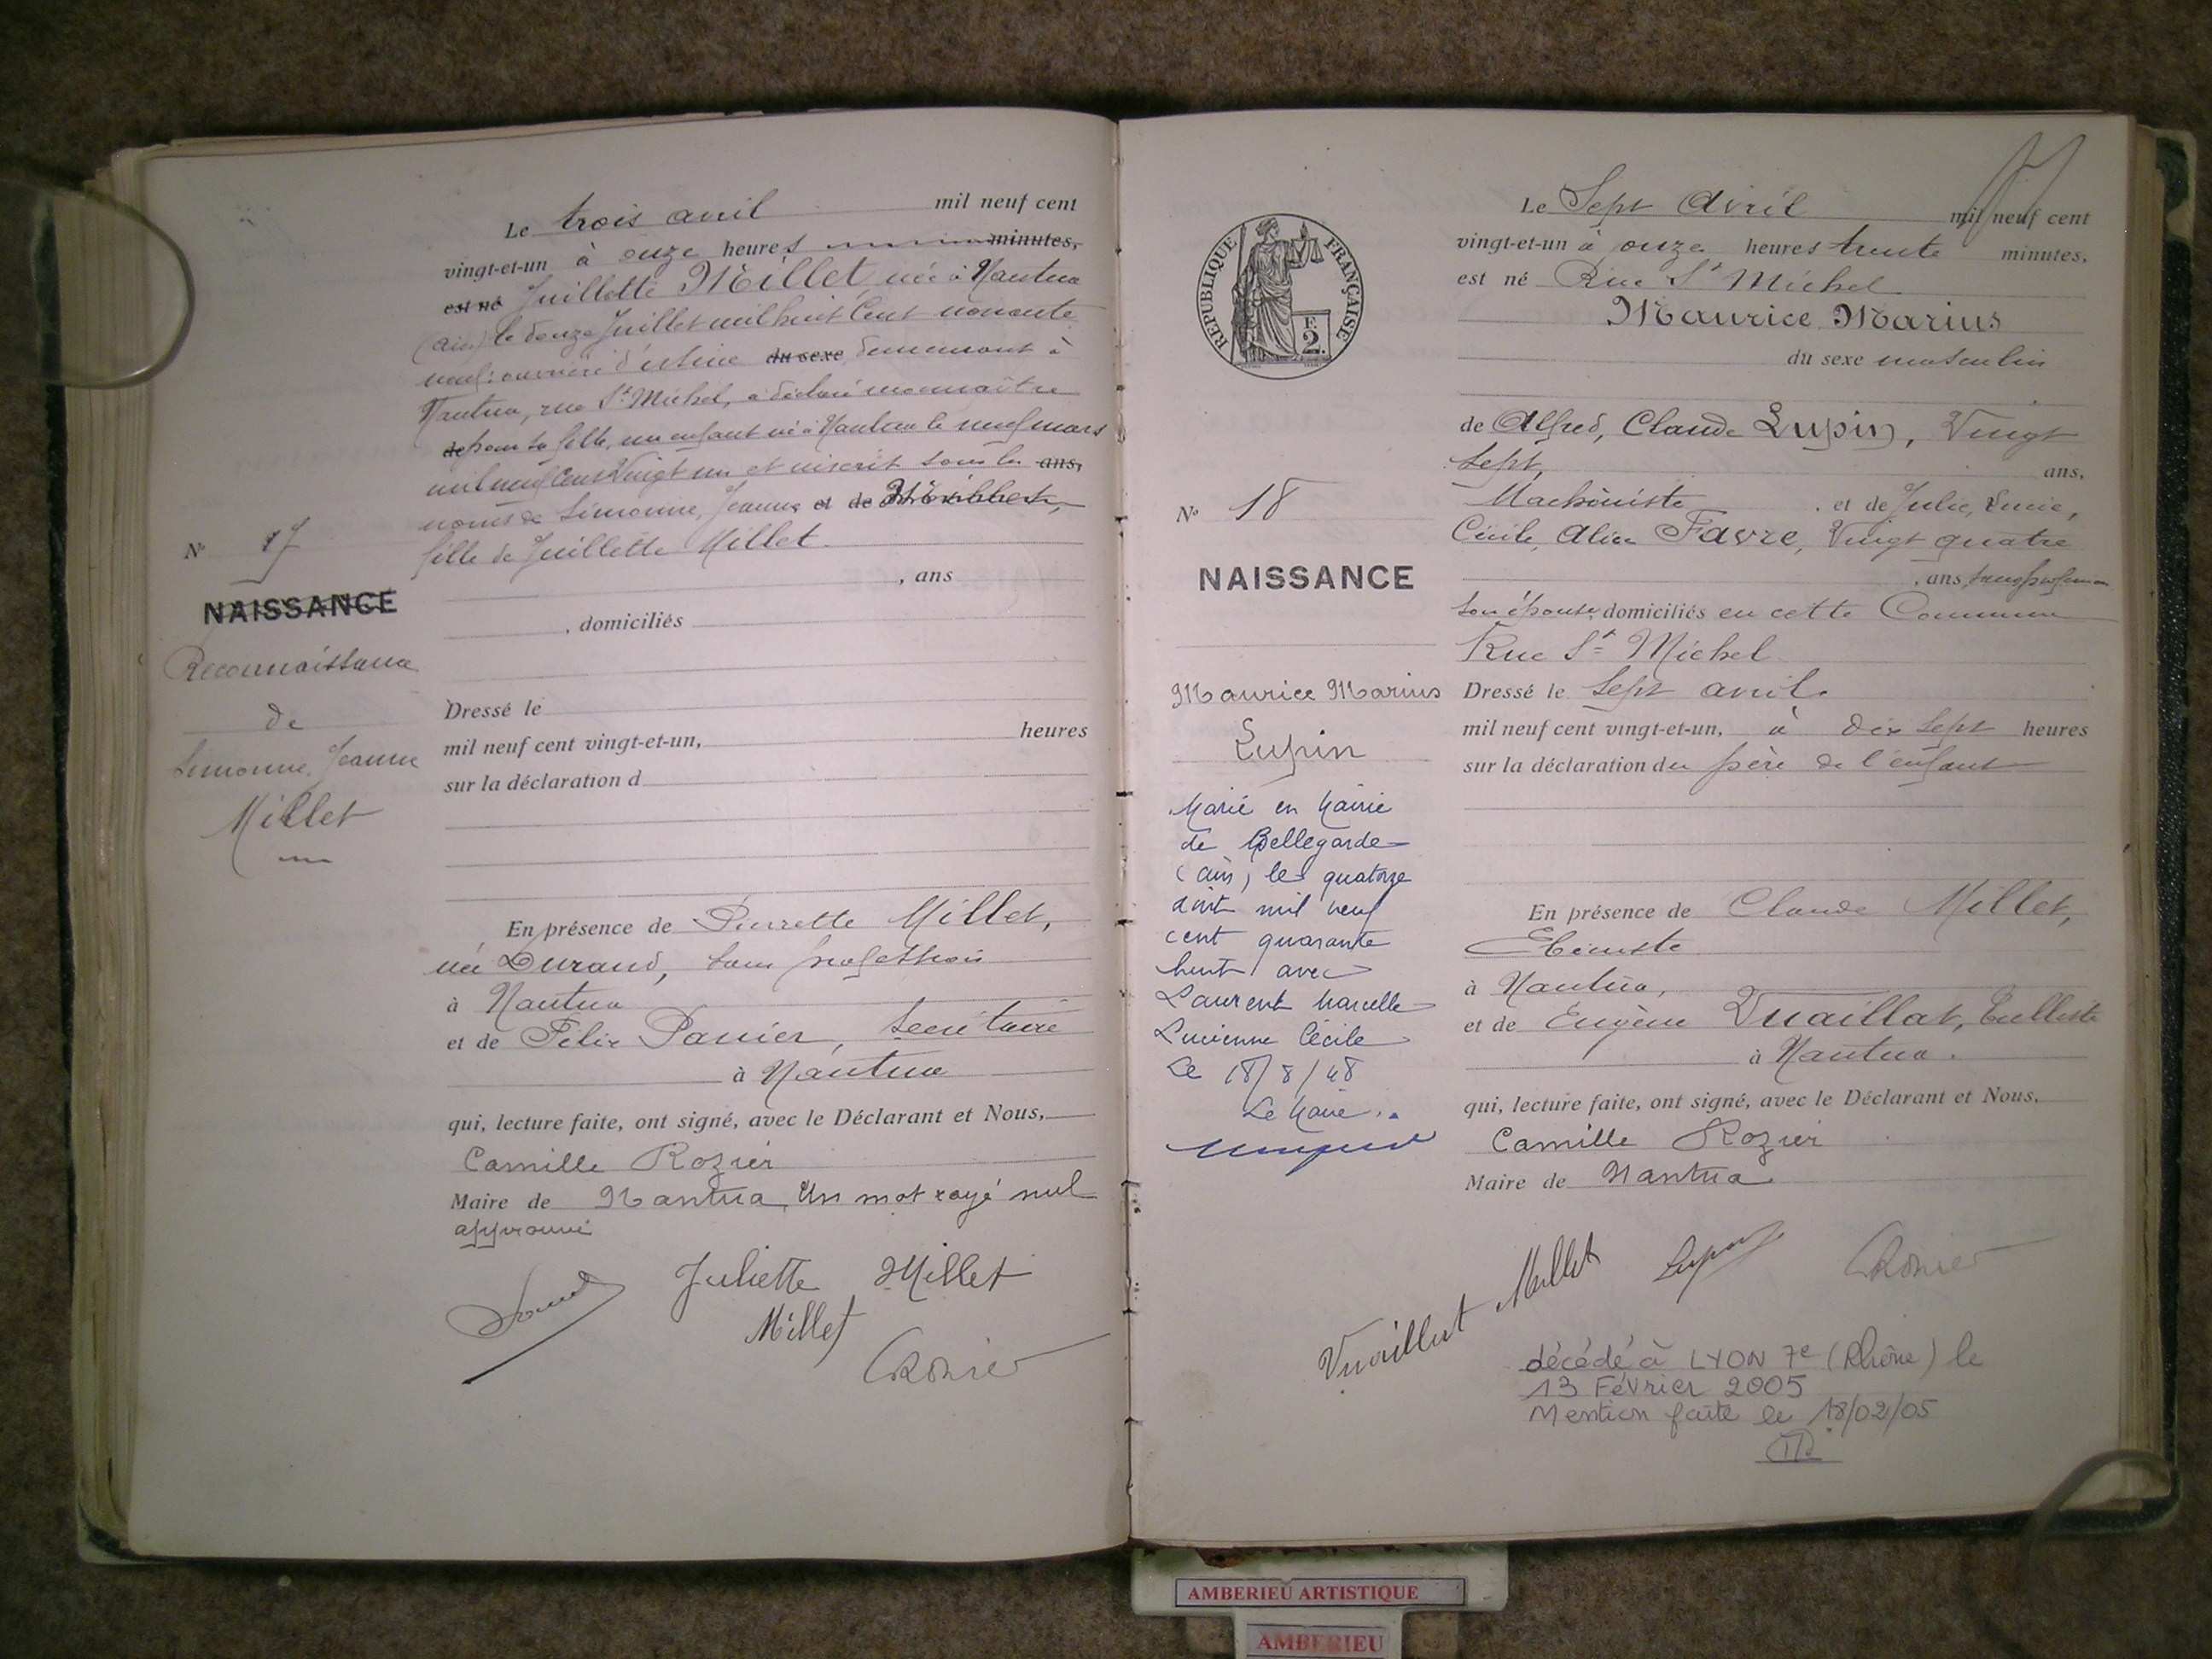 Le trois avril mil neuf cent
vingt-et-un à onze heures minutes,
est né Juillette Millet née à Nantua
(Ain) le douze Juillet mil huit Cent nonante
neuf, ouvrière d'usine du sexe demeurant à
Nantua, rue St Michel, a déclaré reconnaître
de pour sa fille, un enfant né à Nantua le neuf mars
mil neuf Cent Vingt un et inscrit sous les ans,
noms de Simonne, Jeanne et de
fille de Juillette Millet.
, ans
, domiciliés
Nº 17
NAISSANCE
Reconnaissance
de
Simonne, Jeanne
Millet
Dressé le
mil neuf cent vingt-et-un, heures
sur la déclaration d
En présence de Pierrette Millet,
née Durand, sans profession
à Nantua
et de Félix Panier, Secrétaire
à Nantua
qui, lecture faite, ont signé, avec le Déclarant et Nous,
Camille Rozier
Maire de Nantua, Un mot rayé nul
approuvé
Juliette Millet
Millet
CRozier
RÉPUBLIQUE FRANÇAISE
F.
2.
Le Sept Avril mil neuf cent
vingt-et-un à onze heures trente minutes,
est né Rue St Michel
Maurice Marius
du sexe masculin
de Alfred, Claude Lupin, Vingt
Sept, ans,
Machiniste et de Julie, Lucie,
Cécile, Alice Favre, Vingt quatre
, ans, sans profession
son épouse, domiciliés en cette Commune
Rue St Michel
Dressé le Sept avril
mil neuf cent vingt-et-un, à dix sept heures
sur la déclaration du père de l'enfant
Nº 18
NAISSANCE
Maurice Marius
Lupin
Marié en Mairie
de Bellegarde
(Ain) le quatorze
Août mil neuf
cent quarante
huit avec
Laurent Marcelle
Lucienne Cécile
Le 18/8/48
Le Maire
En présence de Claude Millet,
Ebéniste
à Nantua,
et de Eugène Vuaillat, Tulliste
à Nantua.
qui, lecture faite, ont signé, avec le Déclarant et Nous,
Camille Rozier
Maire de Nantua
Vuaillat Millet Lupin CRozier
décédé à LYON 7e (Rhône) le
13 Février 2005
Mention faite le 18/02/05
AMBERIEU ARTISTIQUE
AMBERIEU